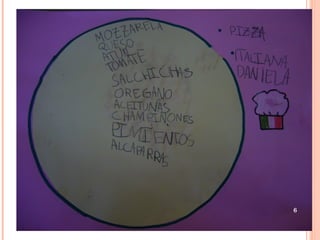 MOZZARELA
QUESO
ATUN
TOMATE
SALCHICHAS
OREGANO
ACEITUNAS
CHAMPIÑONES
PIMIENTOS
ALCAPARRAS
• PIZZA
• ITALIANA
DANIELA
6